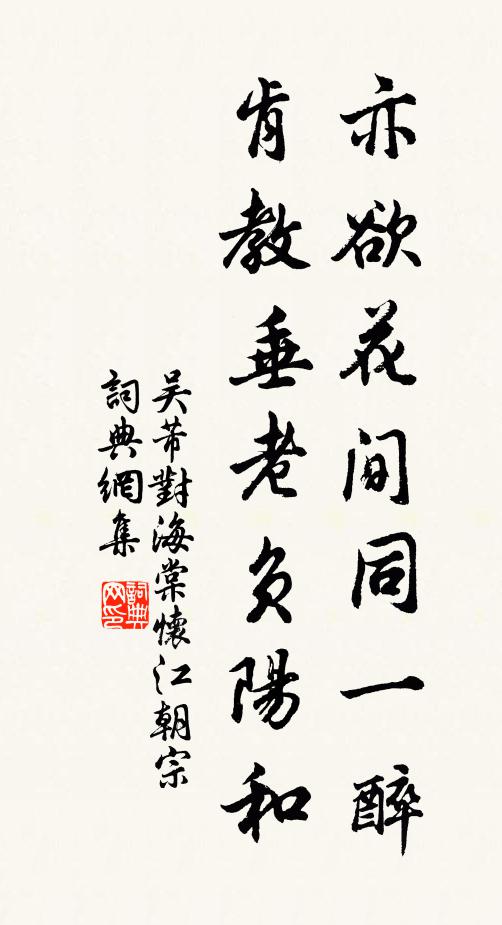 亦欲花間同一醉
肯教垂老負陽和
吴芾對海棠懷江朝宗
詞典網集
詞典网印